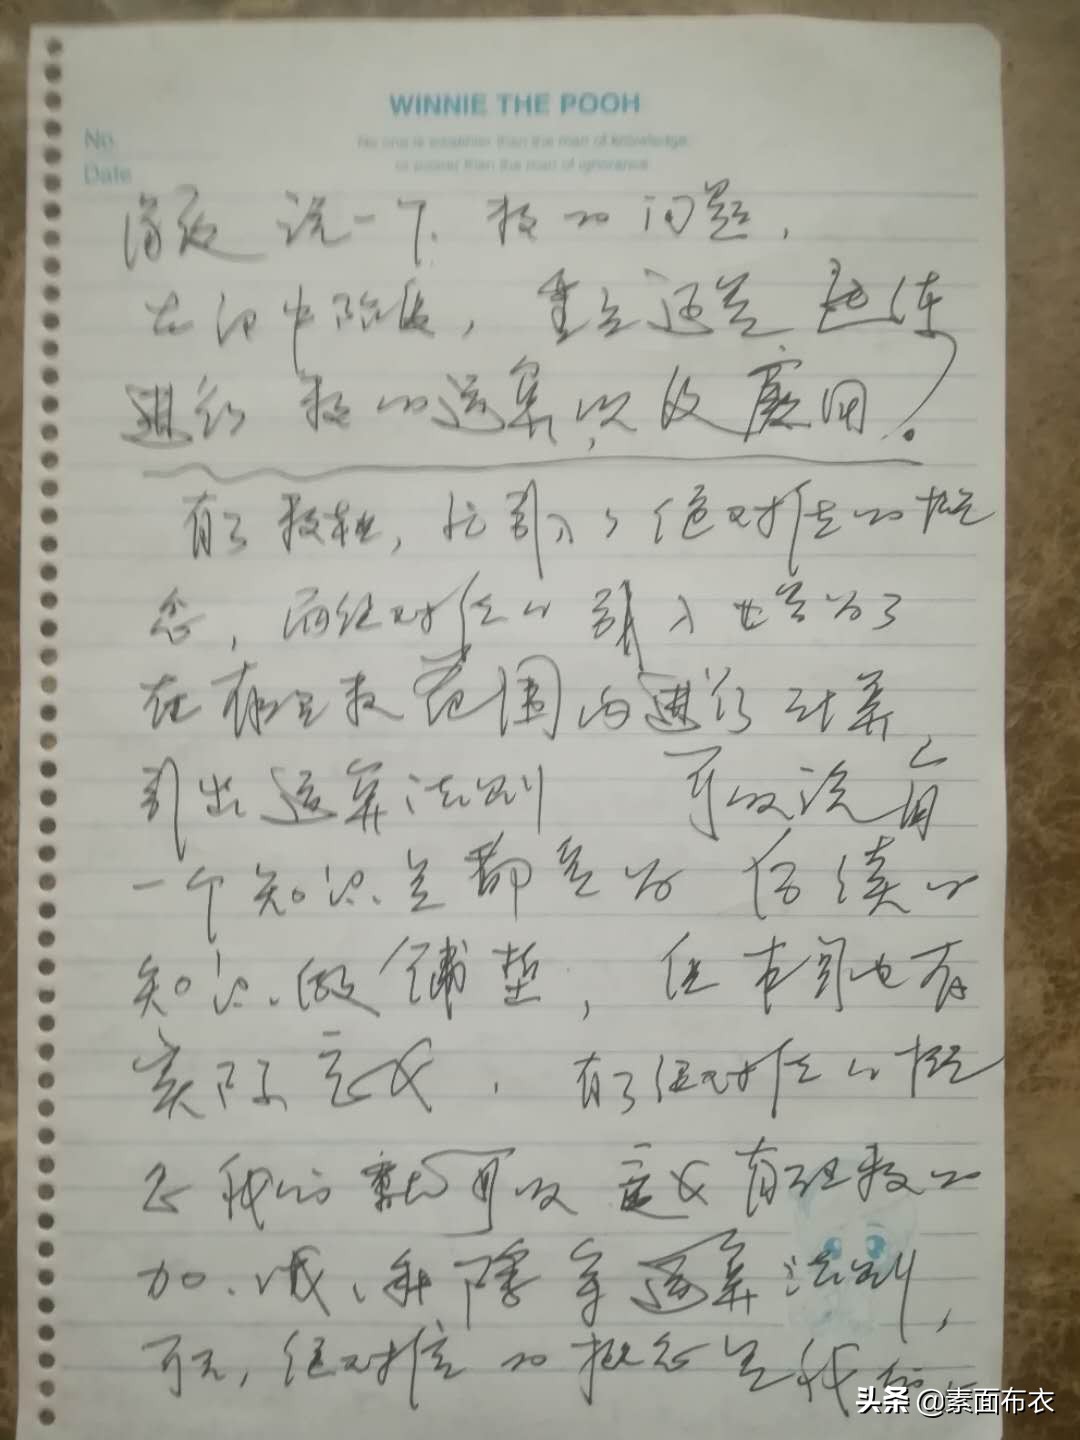 WINNIE THE POOH
No
Date
No one is wealthier than the man of knowledge,
or poorer than the man of ignorance
说一下数的问题,
在初中阶段,重点还是
进行数的运算,以及应用。
有了数轴,就引入了绝对值的概
念,而绝对值的引入也是为了
在有理数范围内进行计算,
引出运算法则 可以说每
一个知识点都是为后续的
知识做铺垫,但本身也有
实际意义.有了绝对值的概
念我们就可以定义有理数的
加、减、乘除等运算法则,
可见,绝对值的概念是我们
头条 @素面布衣